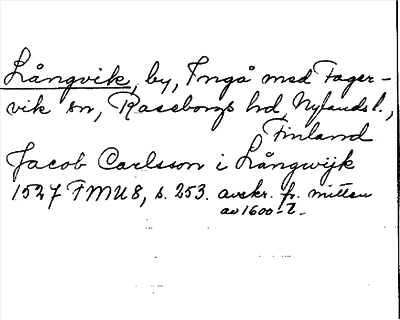 Långvik, by, Ingå med Fager-
vik sn, Raseborgs hd, Nylands l.,
Finland
Jacob Carlsson i Långwijk
1527 FMU 8, s. 253. avskr. fr. mitten
av 1600-t.